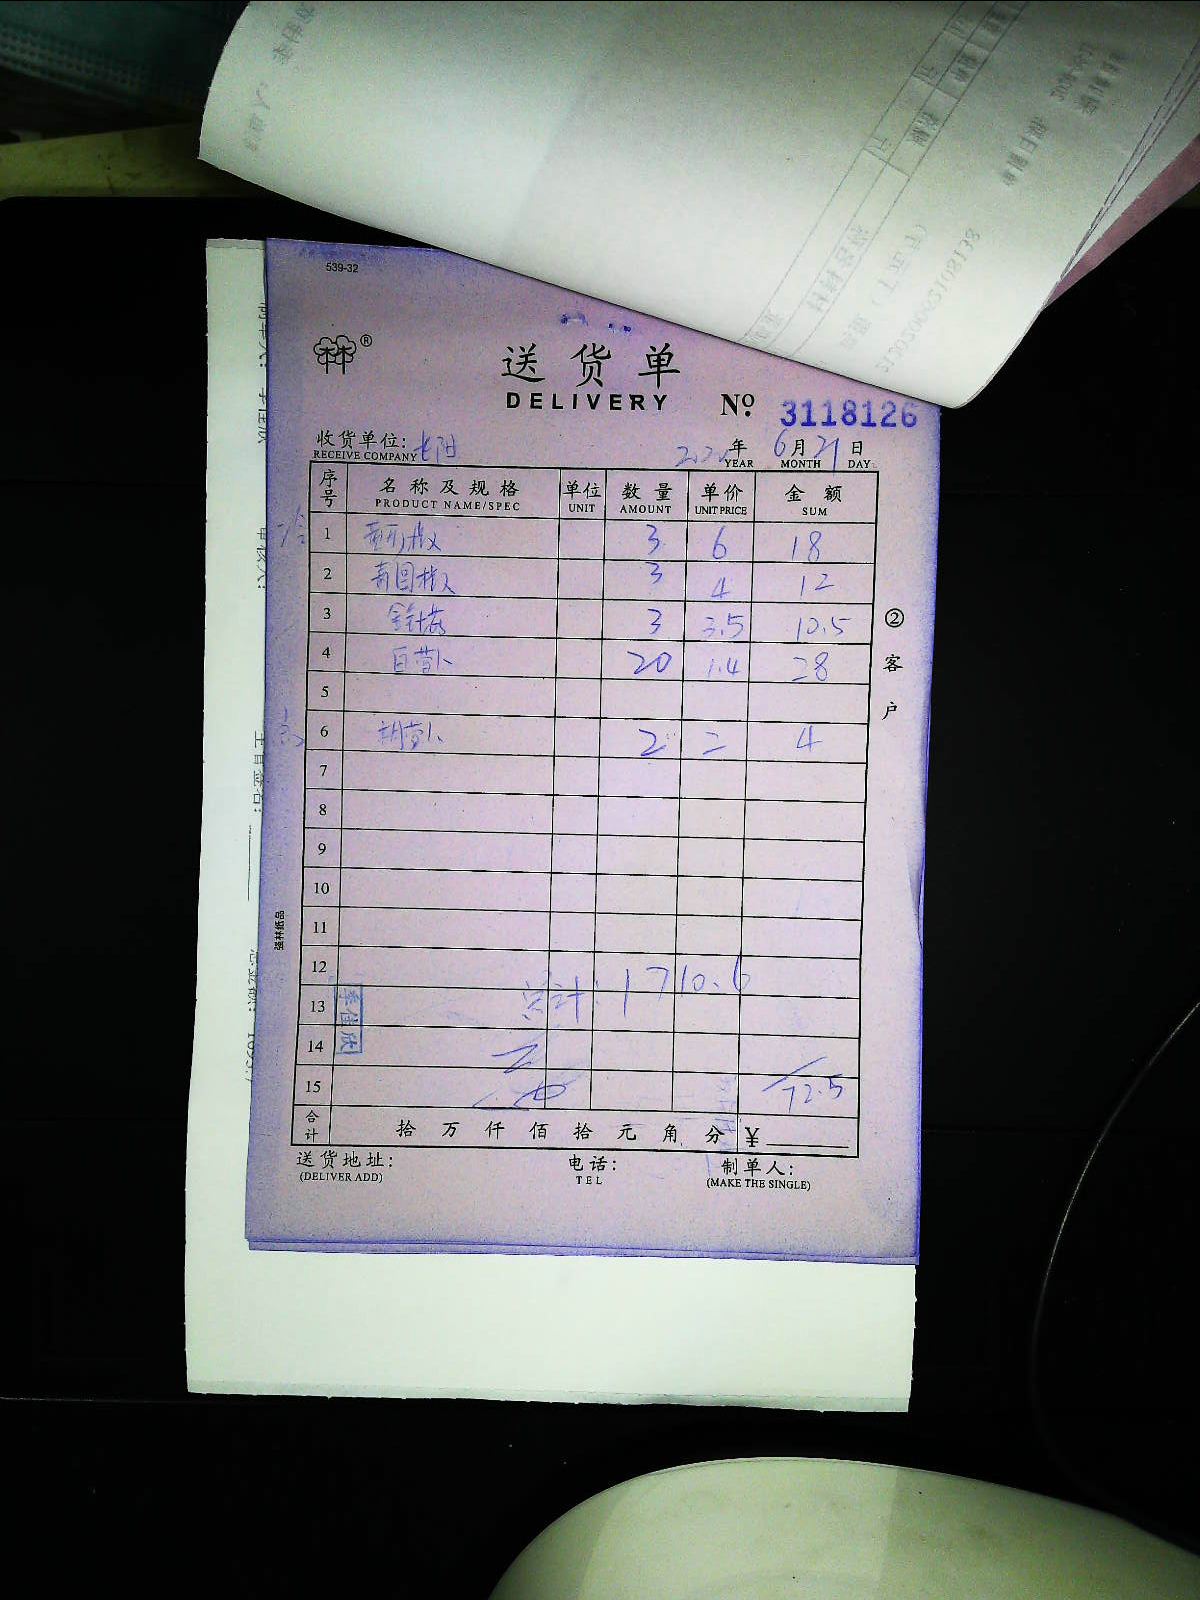 539-32
林林®
送货单
DELIVERY No. 3118126
收货单位: 长阳 2020年 6月21日
RECEIVE COMPANY YEAR MONTH DAY
序号 名称及规格 单位 数量 单价 金额
PRODUCT NAME/SPEC UNIT AMOUNT UNIT PRICE SUM
1 3 6 18
2 青圆椒 3 4 12
3 金针菇 3 3.5 10.5
4 白萝卜 20 1.4 28
5
6 胡萝卜 2 2 4
7
8
9
10
11
12
总计: 1710.6
13
李佳欣
14
15 72.5
合计 拾 万 仟 佰 拾 元 角 分 ¥
送货地址: 电话: 制单人:
(DELIVER ADD) TEL (MAKE THE SINGLE)
②客户
强林纸品